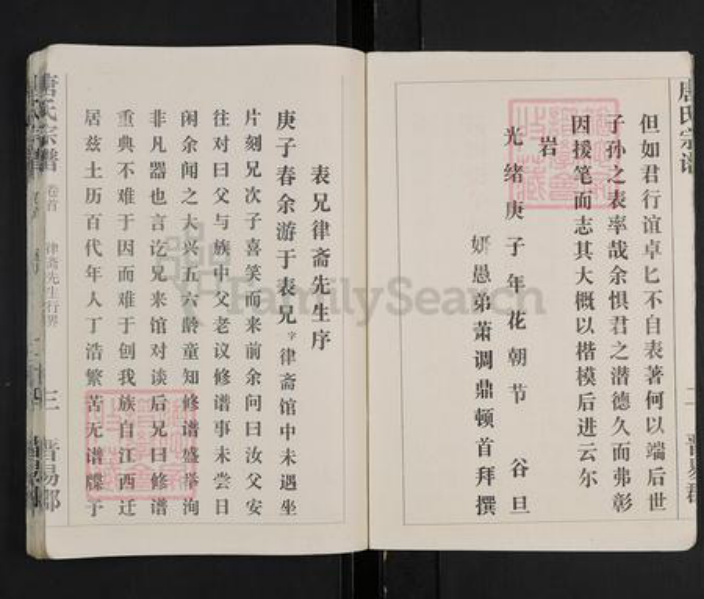 唐氏宗谱
但如君行谊卓匕不自表著何以端后世
子孙之表率哉余惧君之潜德久而弗彰
因援笔而志其大概以楷模后进云尔
岩
光绪庚子年花朝节 谷旦
妍愚弟萧调鼎顿首拜撰
表兄律斋先生序
庚子春余游于表兄字律斋馆中未遇坐
片刻兄次子喜笑而来前余问曰汝父安
往对曰父与族中父老议修谱事未尝日
闲余闻之大兴五六龄童知修谱盛举洵
非凡器也言讫兄来馆对谈后兄曰修谱
重典不难于因而难于创我族自江西迁
居兹土历百代年人丁浩繁苦无谱牒于
唐氏宗谱
卷首
律斋先生行界
三
晋易郡
FamilySearch